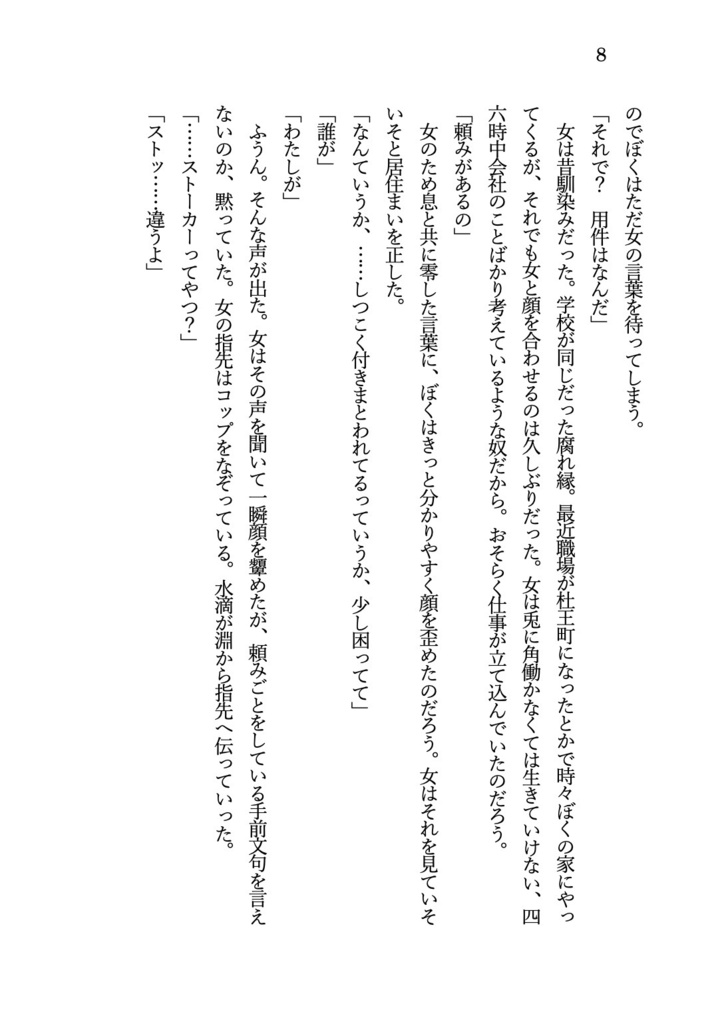 8
のでぼくはただ女の言葉を待ってしまう。
「それで？　用件はなんだ」
　女は昔馴染みだった。学校が同じだった腐れ縁。最近職場が杜王町になったとかで時々ぼくの家にやっ
てくるが、それでも女と顔を合わせるのは久しぶりだった。女は兎に角働かなくては生きていけない、四
六時中会社のことばかり考えているような奴だから。おそらく仕事が立て込んでいたのだろう。
「頼みがあるの」
　女のため息と共に零した言葉に、ぼくはきっと分かりやすく顔を歪めたのだろう。女はそれを見ていそ
いそと居住まいを正した。
「なんていうか、……しつこく付きまとわれてるっていうか、少し困ってて」
「誰が」
「わたしが」
　ふうん。そんな声が出た。女はその声を聞いて一瞬顔を顰めたが、頼みごとをしている手前文句を言え
ないのか、黙っていた。女の指先はコップをなぞっている。水滴が淵から指先へ伝っていった。
「……ストーカーってやつ？」
「ストッ……違うよ」